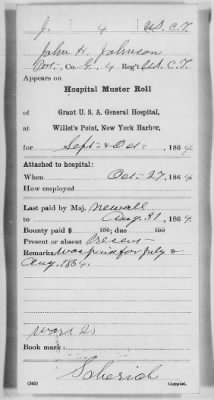 J. 4 U.S.C.T.
John H. Johnson
Co. G, 4 Reg't U.S.C.T.
Appears on
Hospital Muster Roll
of
Grant U. S. A. General Hospital,
at
Willet's Point, New York Harbor,
for Sept. & Oct., 1864
Attached to hospital:
When Oct. 27, 1864
How employed
Last paid by Maj. Newall
to Aug. 31, 1864
Bounty paid $ 100; due 100
Present or absent Present
Remarks: Was paid for July &
Aug. 1864.
Book mark:
Copyist.